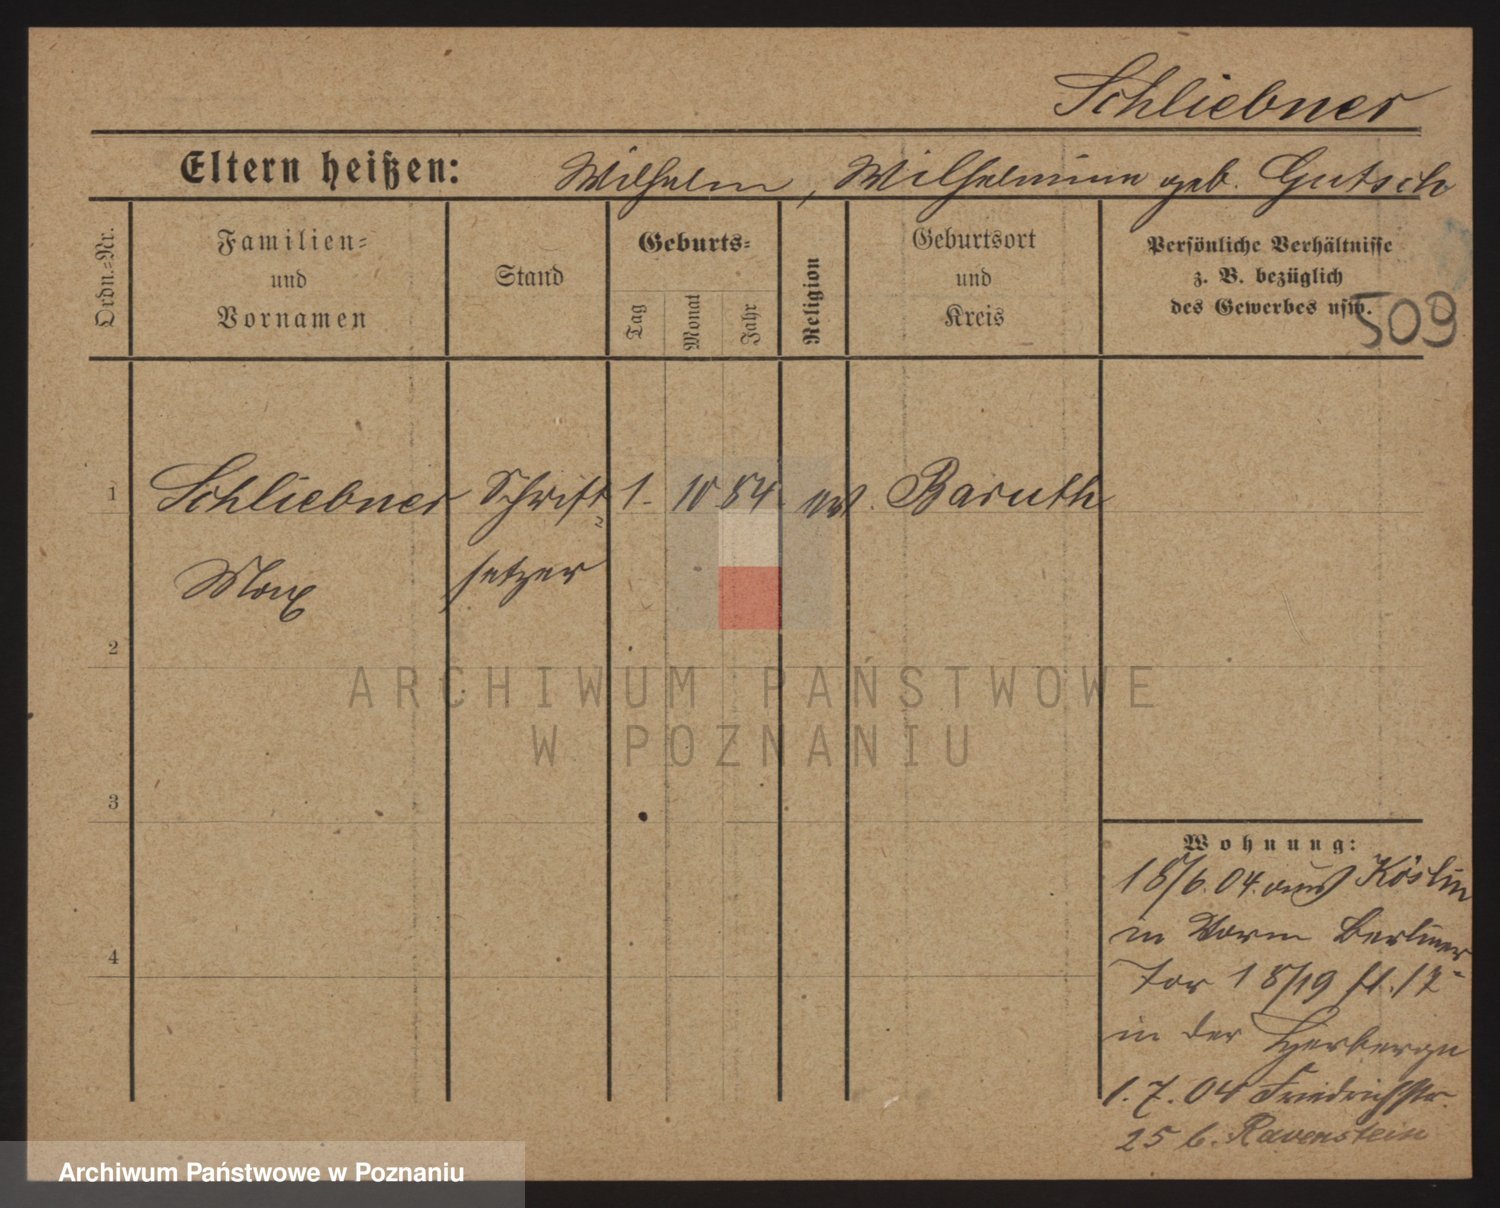 Schliebner
Eltern heißen: Wilhelm, Wilhelmine geb. Gutsch
Ordn.=Nr.
Familien=
und
Vornamen
Stand
Geburts=
Tag
Monat
Jahr
Religion
Geburtsort
und
Kreis
Persönliche Verhältnisse
z. B. bezüglich
des Gewerbes usw.
509
1 Schliebner Schrift 1. 10 84 ev. Baruth
Max setzer
2
ARCHIWUM PAŃSTWOWE
W POZNANIU
3
4
Wohnung:
18/6.04. aus Köslin
in Vorm Berliner
Tor 18/19
in der Herberge
1.7.04 Friedrichstr.
25 b. Ravenstein
Archiwum Państwowe w Poznaniu